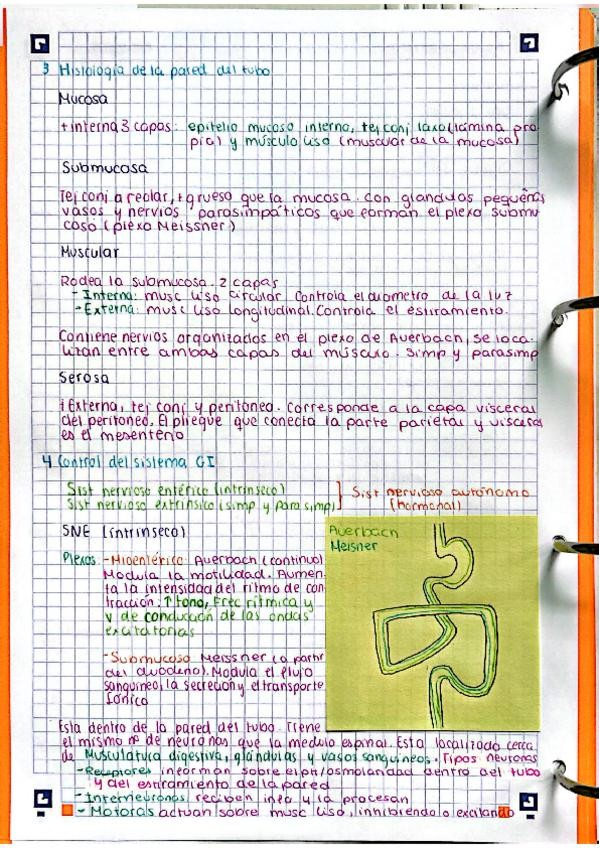 3 Histologia de la pared del tubo
Mucosa
+ interna 3 capas: epitelio mucoso interno, tej conj laxo (lámina pro-
pia) y músculo liso (muscular de la mucosa)
Submucosa
Tej conj areolar, + grueso que la mucosa. Con glandulas pequeñas
vasos y nervios parasimpáticos que forman el plexo submu
coso (plexo Meissner)
Muscular
Rodea la submucosa. 2 capas
- Interna: musc liso circular. Controla el diametro de la luz
- Externa: musc liso longitudinal. Controla el estiramiento.
Contiene nervios organizados en el plexo de Auerbach, se loca-
lizan entre ambas capas del músculo. Simp y parasimp
Serosa
+ Externa, tej conj y peritoneo. Corresponde a la capa visceral
del peritoneo. El pliegue que conecta la parte parietal y visceral
es el mesenterio
4 Control del sistema GI
Sist nervioso entérico (intrinseco)
Sist nervioso extrinsico (simp y para simp)
} Sist nervioso autónomo
(hormonal)
SNE (intrinseco)
Plexos - Mioentérico: Auerbach (continuo)
Modula la motilidad. Aumen
ta la intensidad del ritmo de con
tracción: ↑ tono, Frec ritmica y
v de conducción de las ondas
excitatorias
- Submucoso Meissner (a partir
del duodeno). Modula el flujo
sanguineo, la secreción y el transporte
Iónico
Auerbach
Meisner
Esta dentro de la pared del tubo. Tiene
el mismo nº de neuronas que la medula espinal. Esta localizado cerca
de Musculatura digestiva, glándulas y vasos sanguineos. Tipos neuronas
- Receptores informan sobre el ph/osmolaridad dentro del tubo
y del estiramiento de la pared
- Interneuronas reciben info y la procesan
- Motoras actuan sobre musc liso, inhibiendo o excitando